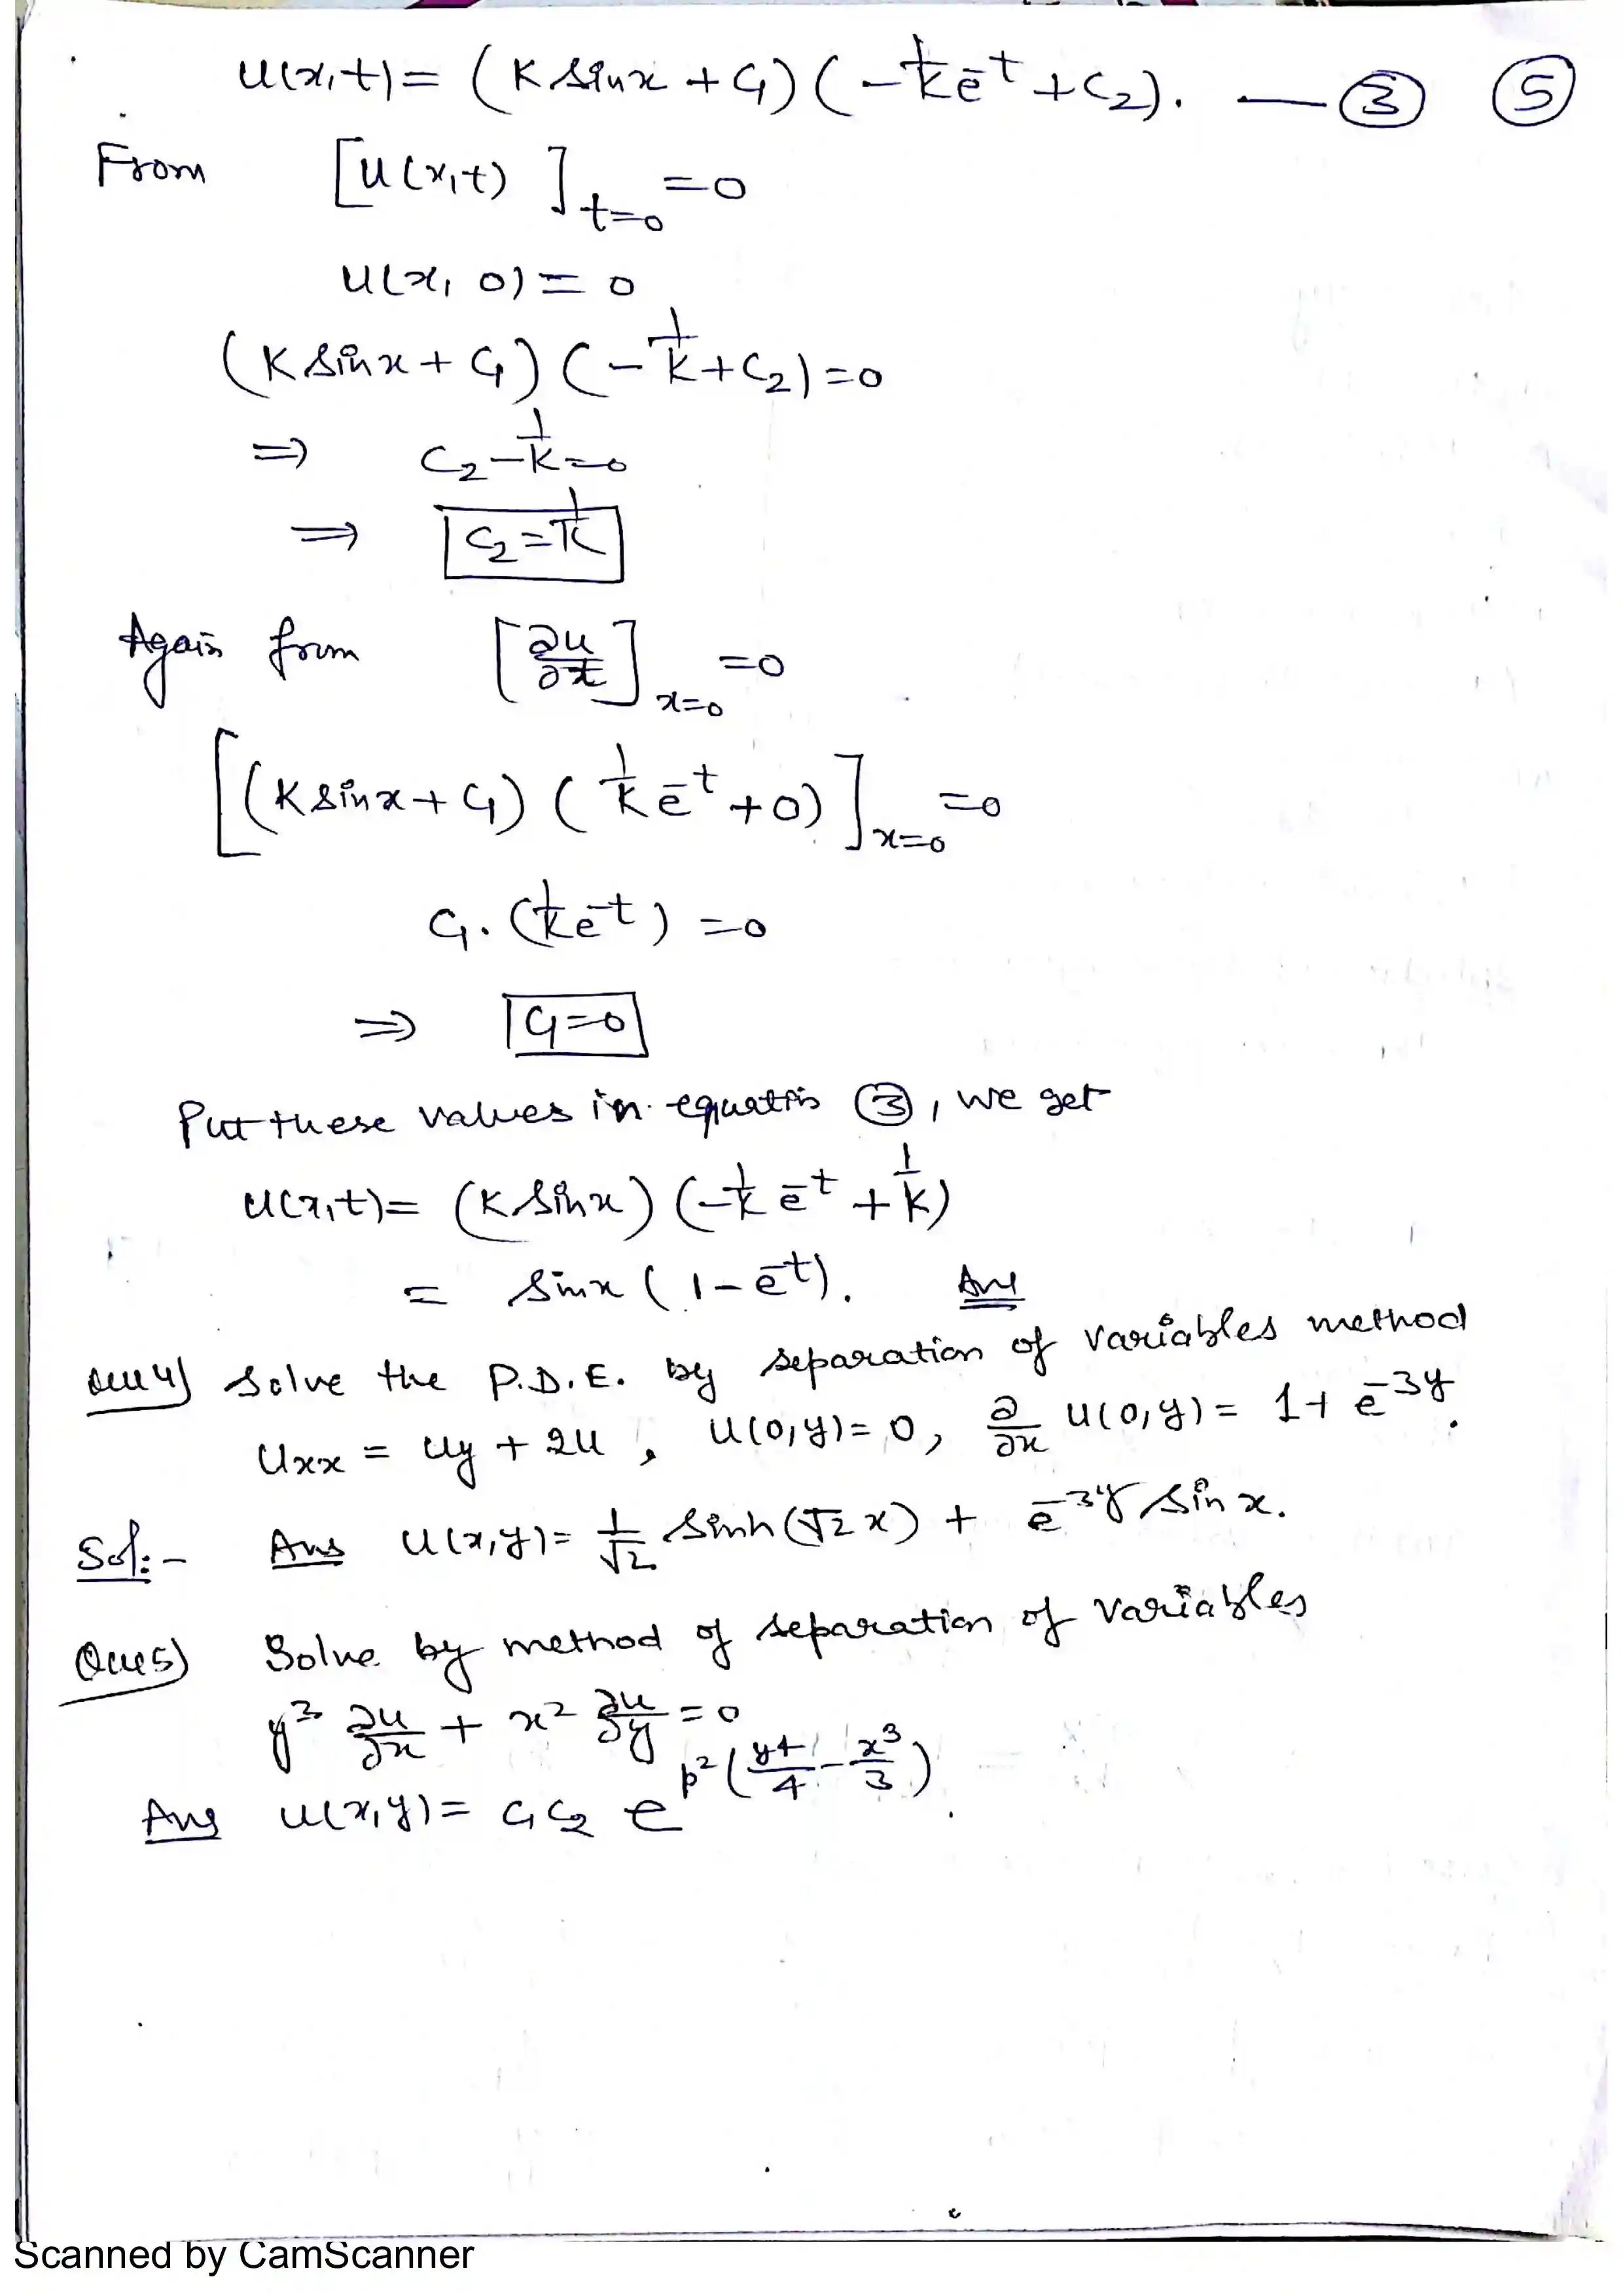 U(x,t) = (K sinx + C₁) (-1/k e^-t + C₂). — ③ ⑤
From [U(x,t)]t=0 = 0
U(x, 0) = 0
(K sinx + C₁) (-1/k + C₂) = 0
⇒ C₂ - 1/k = 0
⇒ C₂ = 1/k
Again from [∂u/∂t]x=0 = 0
[(K sinx + C₁) (1/k e^-t + 0)]x=0 = 0
C₁. (1/k e^-t) = 0
⇒ C₁ = 0
Put these values in equation ③, we get
U(x,t) = (K sinx) (-1/k e^-t + 1/k)
= sinx (1 - e^-t). Ans
Que 4) Solve the P.D.E. by separation of variables method
Uxx = Uy + 2U, U(0,y) = 0, ∂/∂x U(0,y) = 1 + e^-3y.
Sol:- Ans U(x,y) = 1/√2 sinh(√2 x) + e^-3y sin x.
Que 5) Solve by method of separation of variables
y³ ∂u/∂x + x² ∂u/∂y = 0
Ans U(x,y) = C₁ C₂ e^p²(y⁴/4 - x³/3).
Scanned by CamScanner